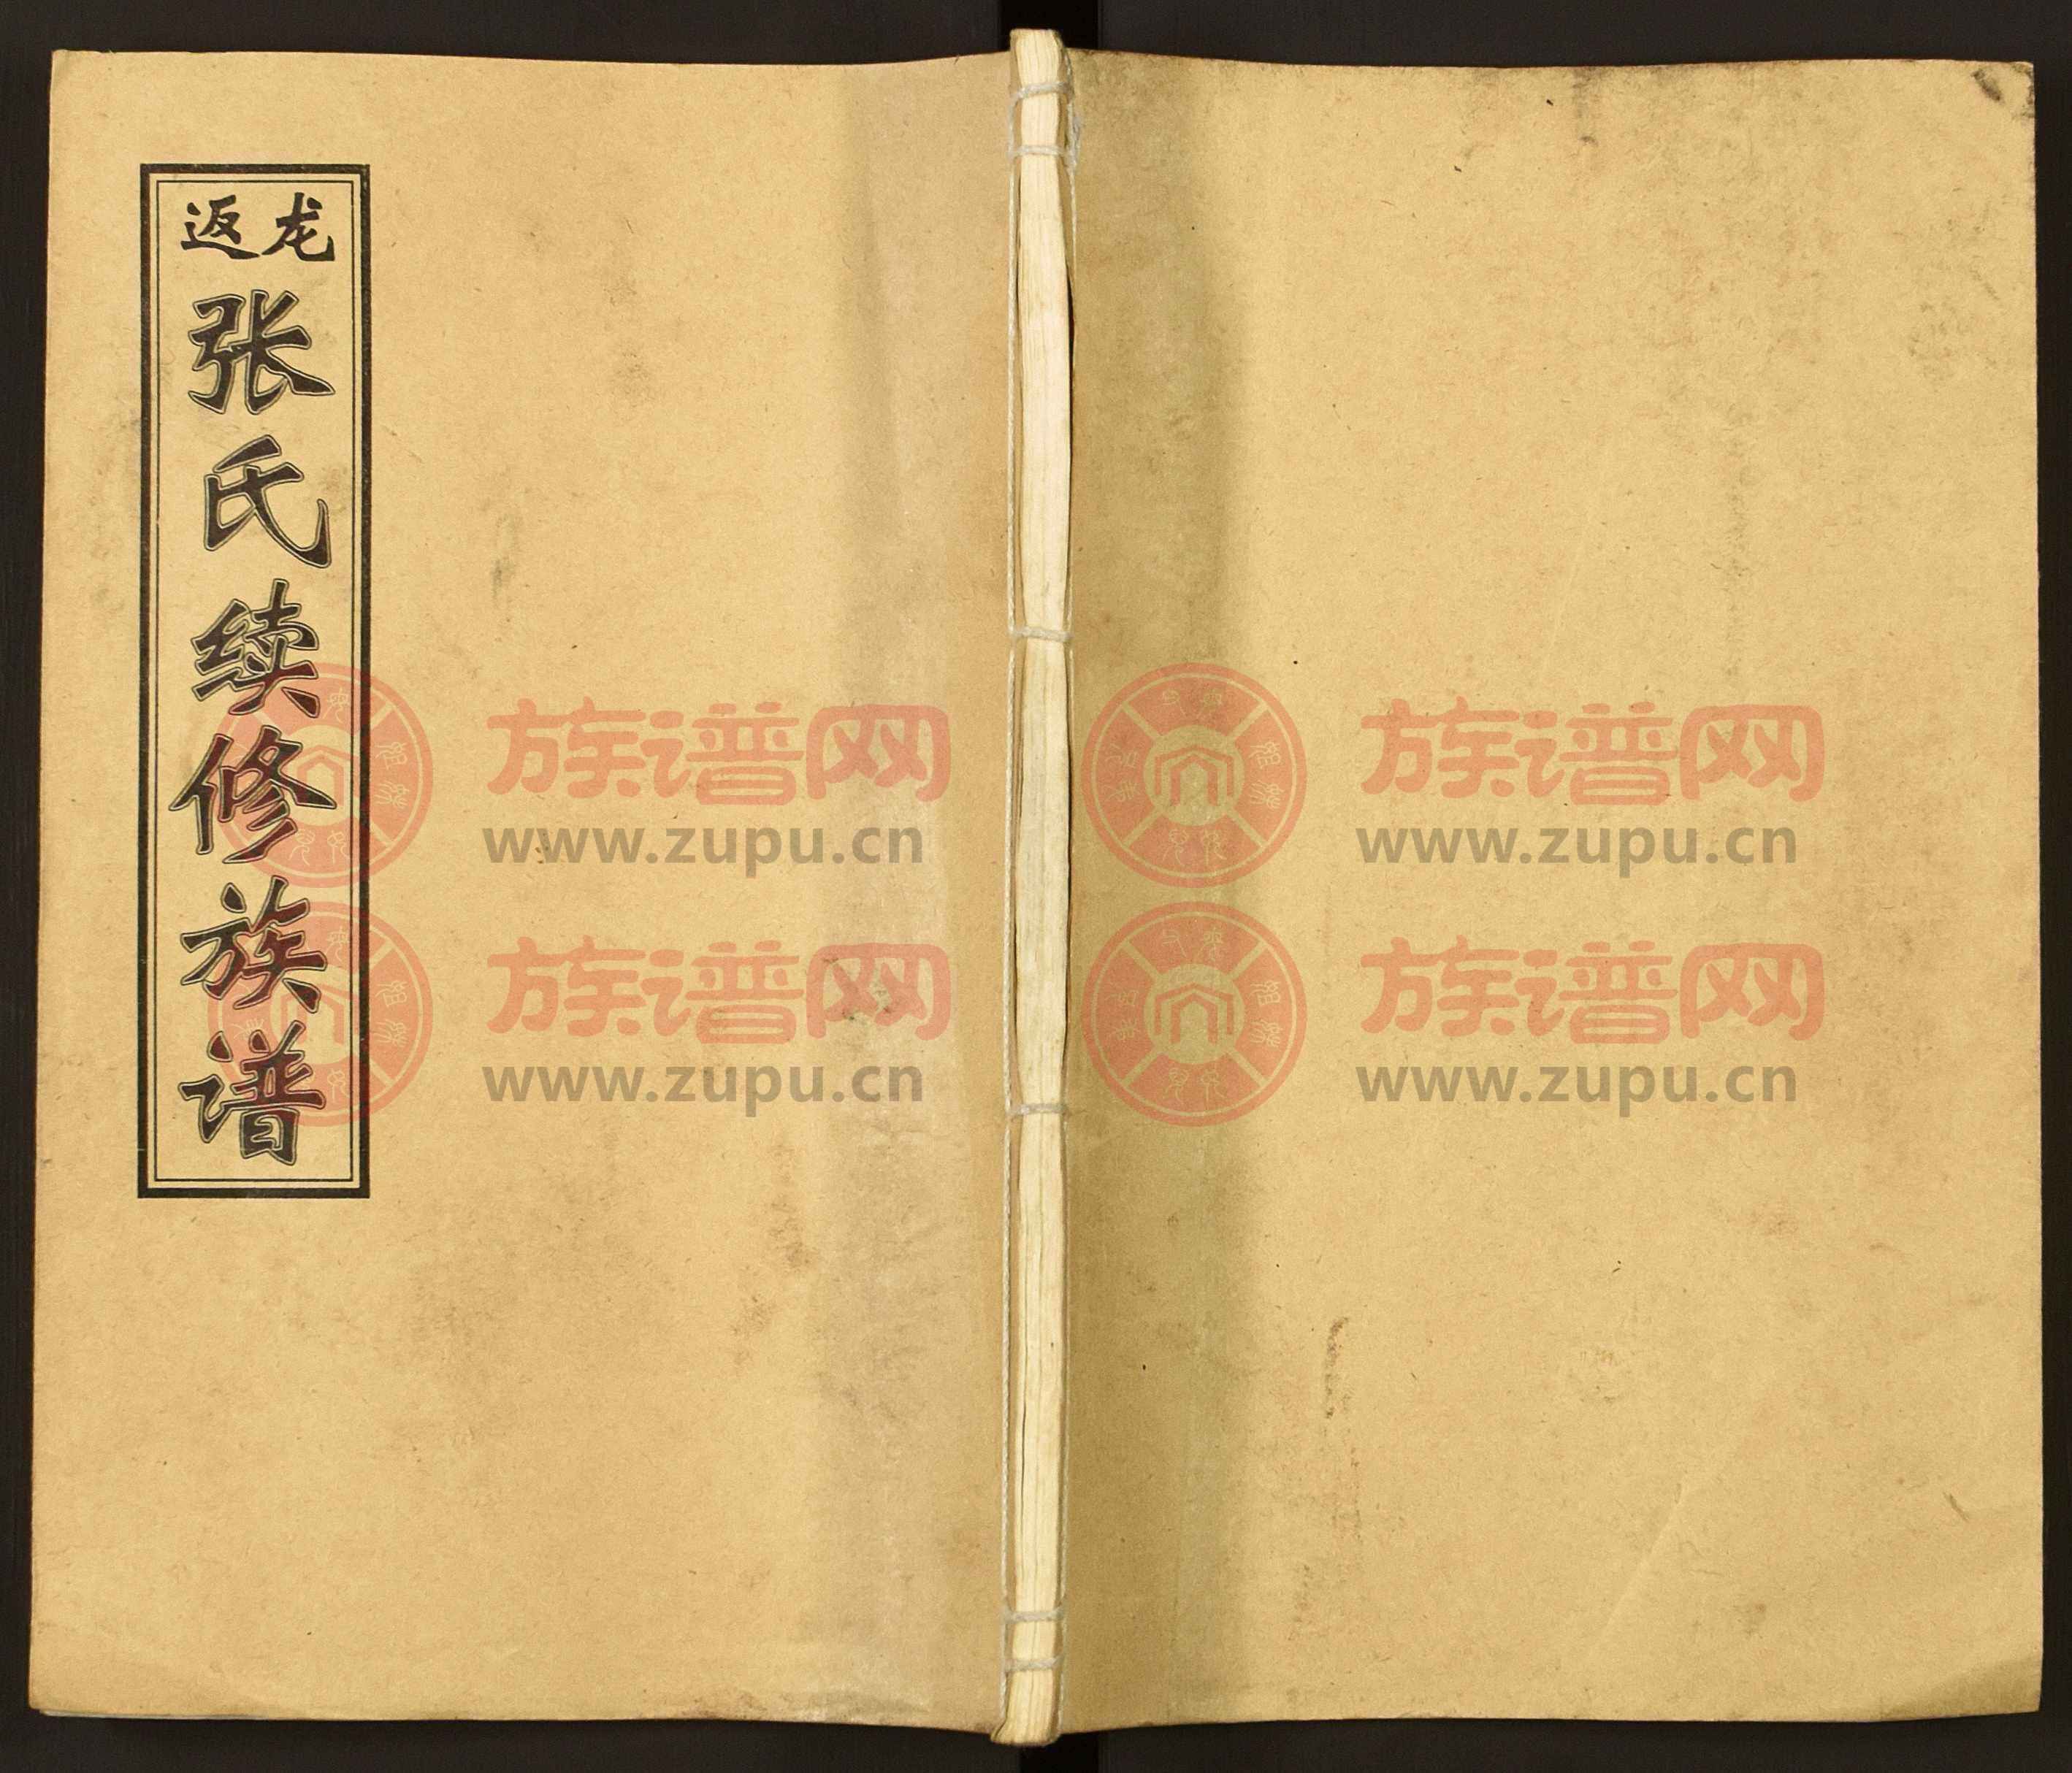 龙返
张氏续修族谱
族谱网
www.zupu.cn
族谱网
www.zupu.cn
族谱网
www.zupu.cn
族谱网
www.zupu.cn